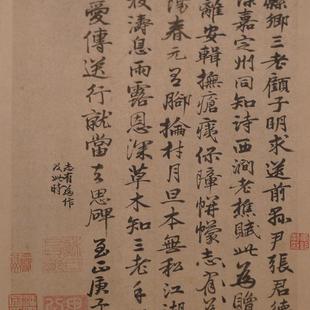 縣鄉三老顧子明求送前縣尹張君德
嘉定州同知詩西澗老樵賦此為贈
離安輯撫瘡痍保障帡幪志有
陽春元召腳掄村月旦本無私江湖
波濤息雨露恩深草木知三老手
愛傳送行就當去思碑至正庚子
志有為作
及此時